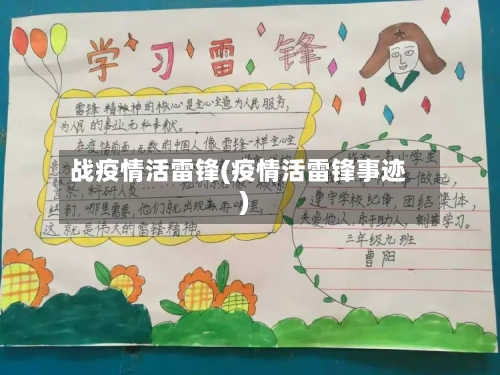 学习雷锋
雷锋精神的核心是全心全意为人民服务,
为人民的事业无私奉献。
在疫情前面,无数的中国人像雷锋一样全心全
战疫情活雷锋(疫情活雷锋事迹
)
学生
做起,
遵守学校纪律,团结集体,
关爱他人,乐于助人,刻苦学习。
哪里需要,他们就出现在哪里,
这就是伟大的雷锋精神。
三年级九班
曹阳